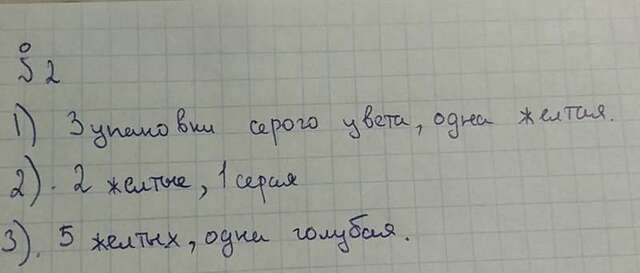 § 2
1) 3 упаковки серого цвета, одна желтая.
2). 2 желтые, 1 серая
3). 5 желтых, одна голубая.